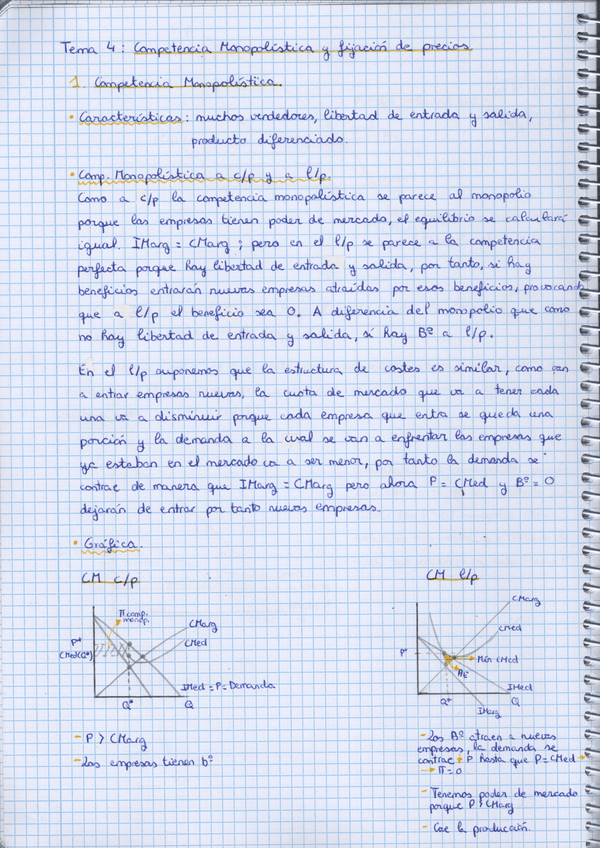 Tema 4: Competencia Monopolística y fijación de precios
1. Competencia Monopolística.
• Características: muchos vendedores, libertad de entrada y salida,
producto diferenciado.
• Comp. Monopolística a c/p y a l/p.
Como a c/p la competencia monopolística se parece al monopolio
porque las empresas tienen poder de mercado, el equilibrio se calculará
igual. IMarg = CMarg; pero en el l/p se parece a la competencia
perfecta porque hay libertad de entrada y salida, por tanto, si hay
beneficios entrarán nuevas empresas atraídas por esos beneficios, provocando
que a l/p el beneficio sea 0. A diferencia del monopolio que como
no hay libertad de entrada y salida, sí hay Bº a l/p.
En el l/p suponemos que la estructura de costes es similar, como van
a entrar empresas nuevas, la cuota de mercado que va a tener cada
una va a disminuir porque cada empresa que entra se queda una
porción y la demanda a la cual se van a enfrentar las empresas que
ya estaban en el mercado va a ser menor, por tanto la demanda se
contrae de manera que IMarg = CMarg pero ahora P = CMed y Bº = 0
dejarán de entrar por tanto nuevas empresas.
• Gráfica.
CM c/p
π comp.
monop.
P*
CMed(Q*)
CMarg
CMed
IMed = P = Demanda
Q*
Q
- P > CMarg
- Las empresas tienen bº
CM l/p
CMarg
CMed
P*
Mín CMed
IMed
IMarg
Q*
Q
- Los Bº atraen a nuevas
empresas, la demanda se
contrae ↓ P hasta que P = CMed →
→ π = 0
- Tenemos poder de mercado
porque P > CMarg
- Cae la producción.